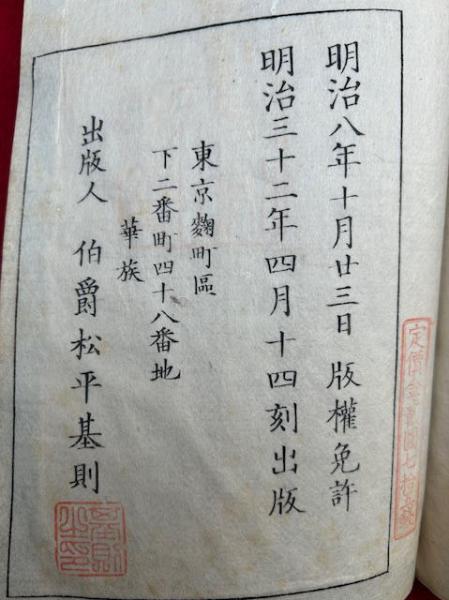 明治八年十月廿三日版權免許
明治三十二年四月十四刻出版
東京麴町區
下二番町四十八番地
華族
出版人 伯爵松平基則
基則之印